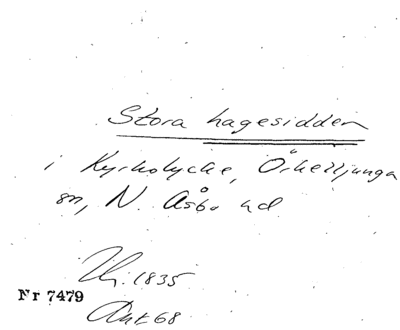 Stora hagesidden
i Kyrkolycke, Örkelljunga
sn, N. Åsbo hd
1835
Nr 7479
Akt 68